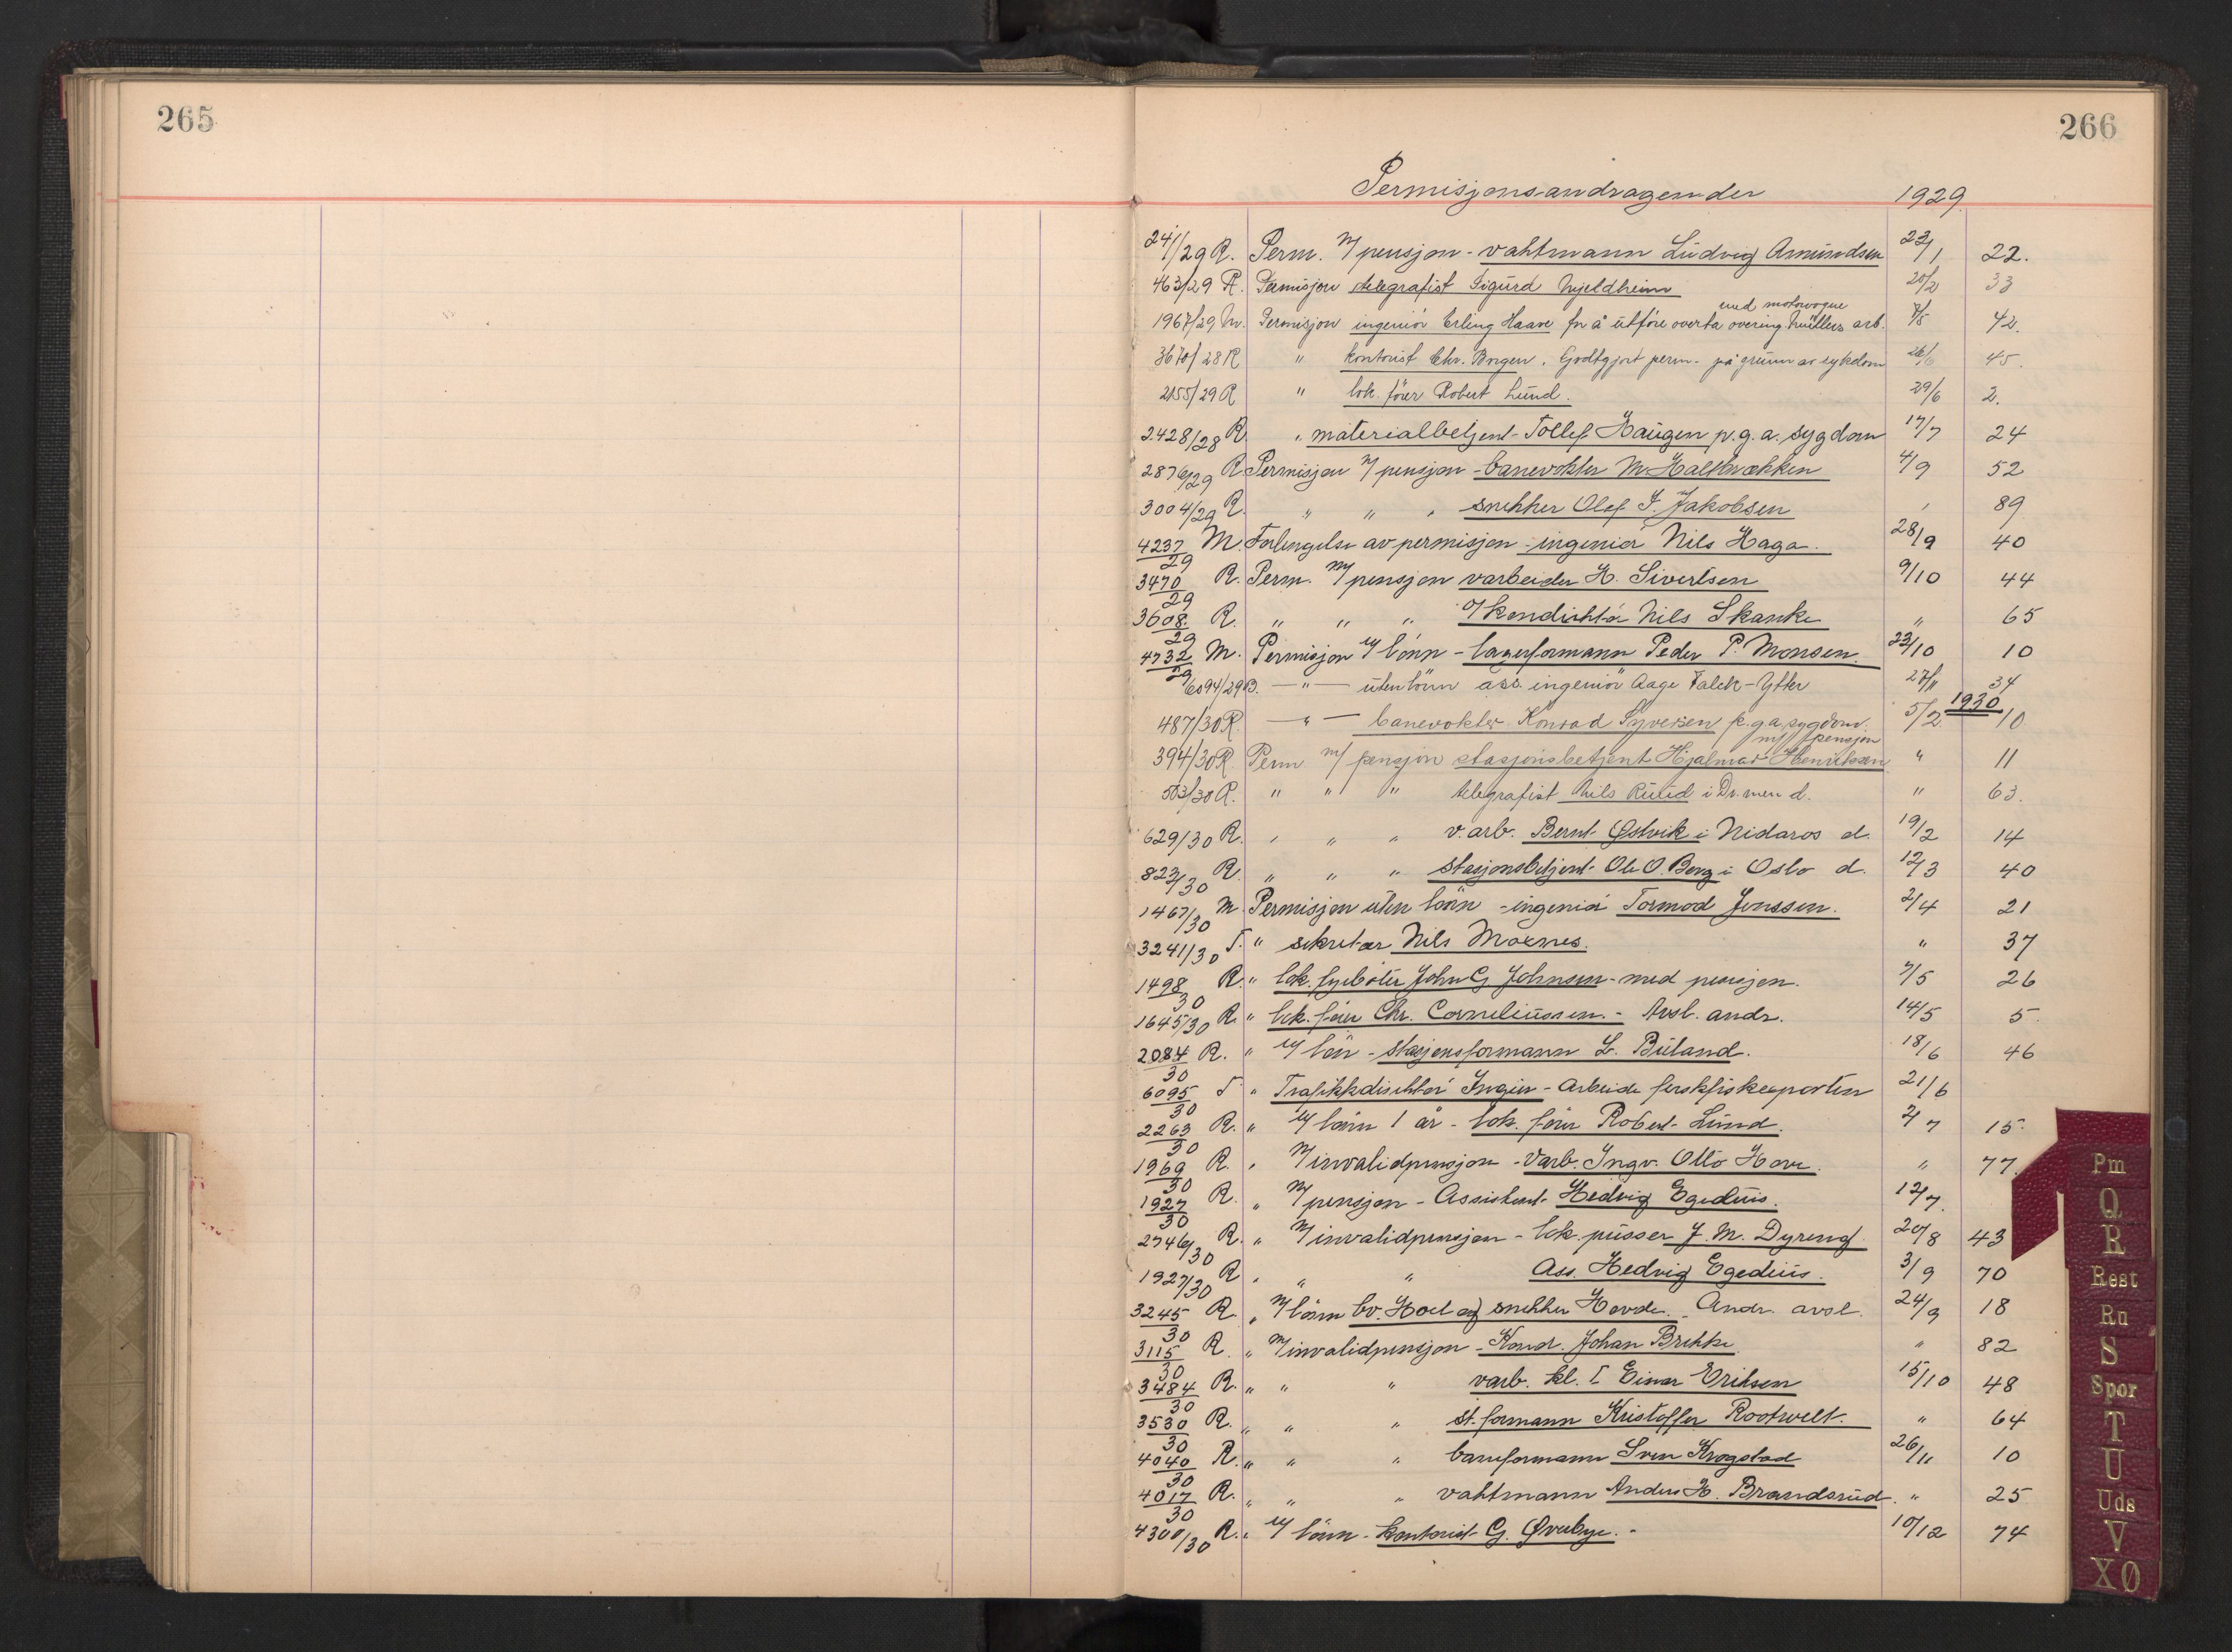 265
266
Permisjonsandragender 1929.
241/29 R. Perm. m/ pensjon - vaktmann Ludvig Amundsen 22/1 22.
463/29 R. Permisjon telegrafist Sigurd Mjeldheim 20/2 33
med motorvogne
1967/29 M. Permisjon ingeniör Erling Haave for å utföre overta overing. Müllers arb. 7/5 42.
3670/28 R " kontorist Chr. Borgen. Godtgjort perm. på grunn av sykdom 26/6 45.
2155/29 R " lok. förer Robert Lund. 29/6 2.
2428/28 R. " materialbetjent Tollef Haugen p.g.a. sygdom 17/7 24
2876/29 R Permisjon m/ pensjon - banevokter M. Halbrækken 4/9 52
3004/29 R. " " " snekker Olaf J. Jakobsen " 89
4237/29 M. Forlengelse av permisjon - ingeniör Nils Haga. 28/9 40
3470/29 R. Perm. m/ pensjon varbeider H. Sivertsen 9/10 44
3608/29 R. " " " o/konduktör Nils Skanke " 65
4732/29 M. Permisjon u/ lönn - lagerformann Peder P. Monsen. 23/10 10
6094/29 B. — " — uten lönn ass. ingeniör Aage Falck-Ytter 27/11 34
1930
487/30 R. — " — banevokter Konrad Syversen p.g.a. sygdom. 5/2 10
m/ pensjon
394/30 R. Perm m/ pensjon stasjonsbetjent Hjalmar Henriksen " 11
503/30 R. " " " telegrafist Nils Ruud i Dr.men d. " 63.
629/30 R. " " " v. arb. Bernt Østvik i Nidaros d. 19/2 14
823/30 R. " " " Stasjonsbetjent Ole O. Berg i Oslo d. 12/3 40
1467/30 M Permisjon uten lönn - ingeniör Tormod Jenssen. 2/4 21
3241/30 T. " sekretær Nils Moenes. " 37
1498/30 R. " lok. fyrböter John G Johnsen - med pensjon. 7/5 26
1645/30 R. " lok. förer Chr. Corneliussen. - Avsl. andr. 14/5 5.
2084/30 R. " u/ lön - stasjonsformann L. Buland. 18/6 46
6095/30 T " Trafikkdirektör Ingier - Arbeide ferskfiskexporten 21/6
2263/30 R. " u/ lönn 1 år - lok. förer Robert Lund. 2/7 15.
1969/30 R. " m/ invalidpensjon - Varb. Ingv. Otto Hove. " 77.
1927/30 R. " m/ pensjon - Assistent Hedvig Egedius. 12/7.
2746/30 R. " m/ invalidpensjon - lok. pusser J. M. Dyreng. 20/8 43
1927/30 R " " " Ass. Hedvig Egedius. 3/9 70
3245/30 R. " m/ lönn bv. Hoel og snekker Hovde. Andr. avsl. 24/9 18
3115/30 R. " m/ invalidpensjon - Kond. Johan Brekke. " 82
3484/30 R. " " " varb. kl. I Einar Eriksen 15/10 48
3530/30 R. " " " st. formann Kristoffer Rootwelt. " 64
4040/30 R. " " " baneformann Sven Krogstad 26/11 10
4017/30 R. " " " vaktmann Anders H. Brandsrud. " 25
4300/30 R. " u/ lönn - kontorist G. Øverbye. - 10/12 74
Pm
Q
R
Rest
Ru
S
Spor
T
U
Uds
V
XØ